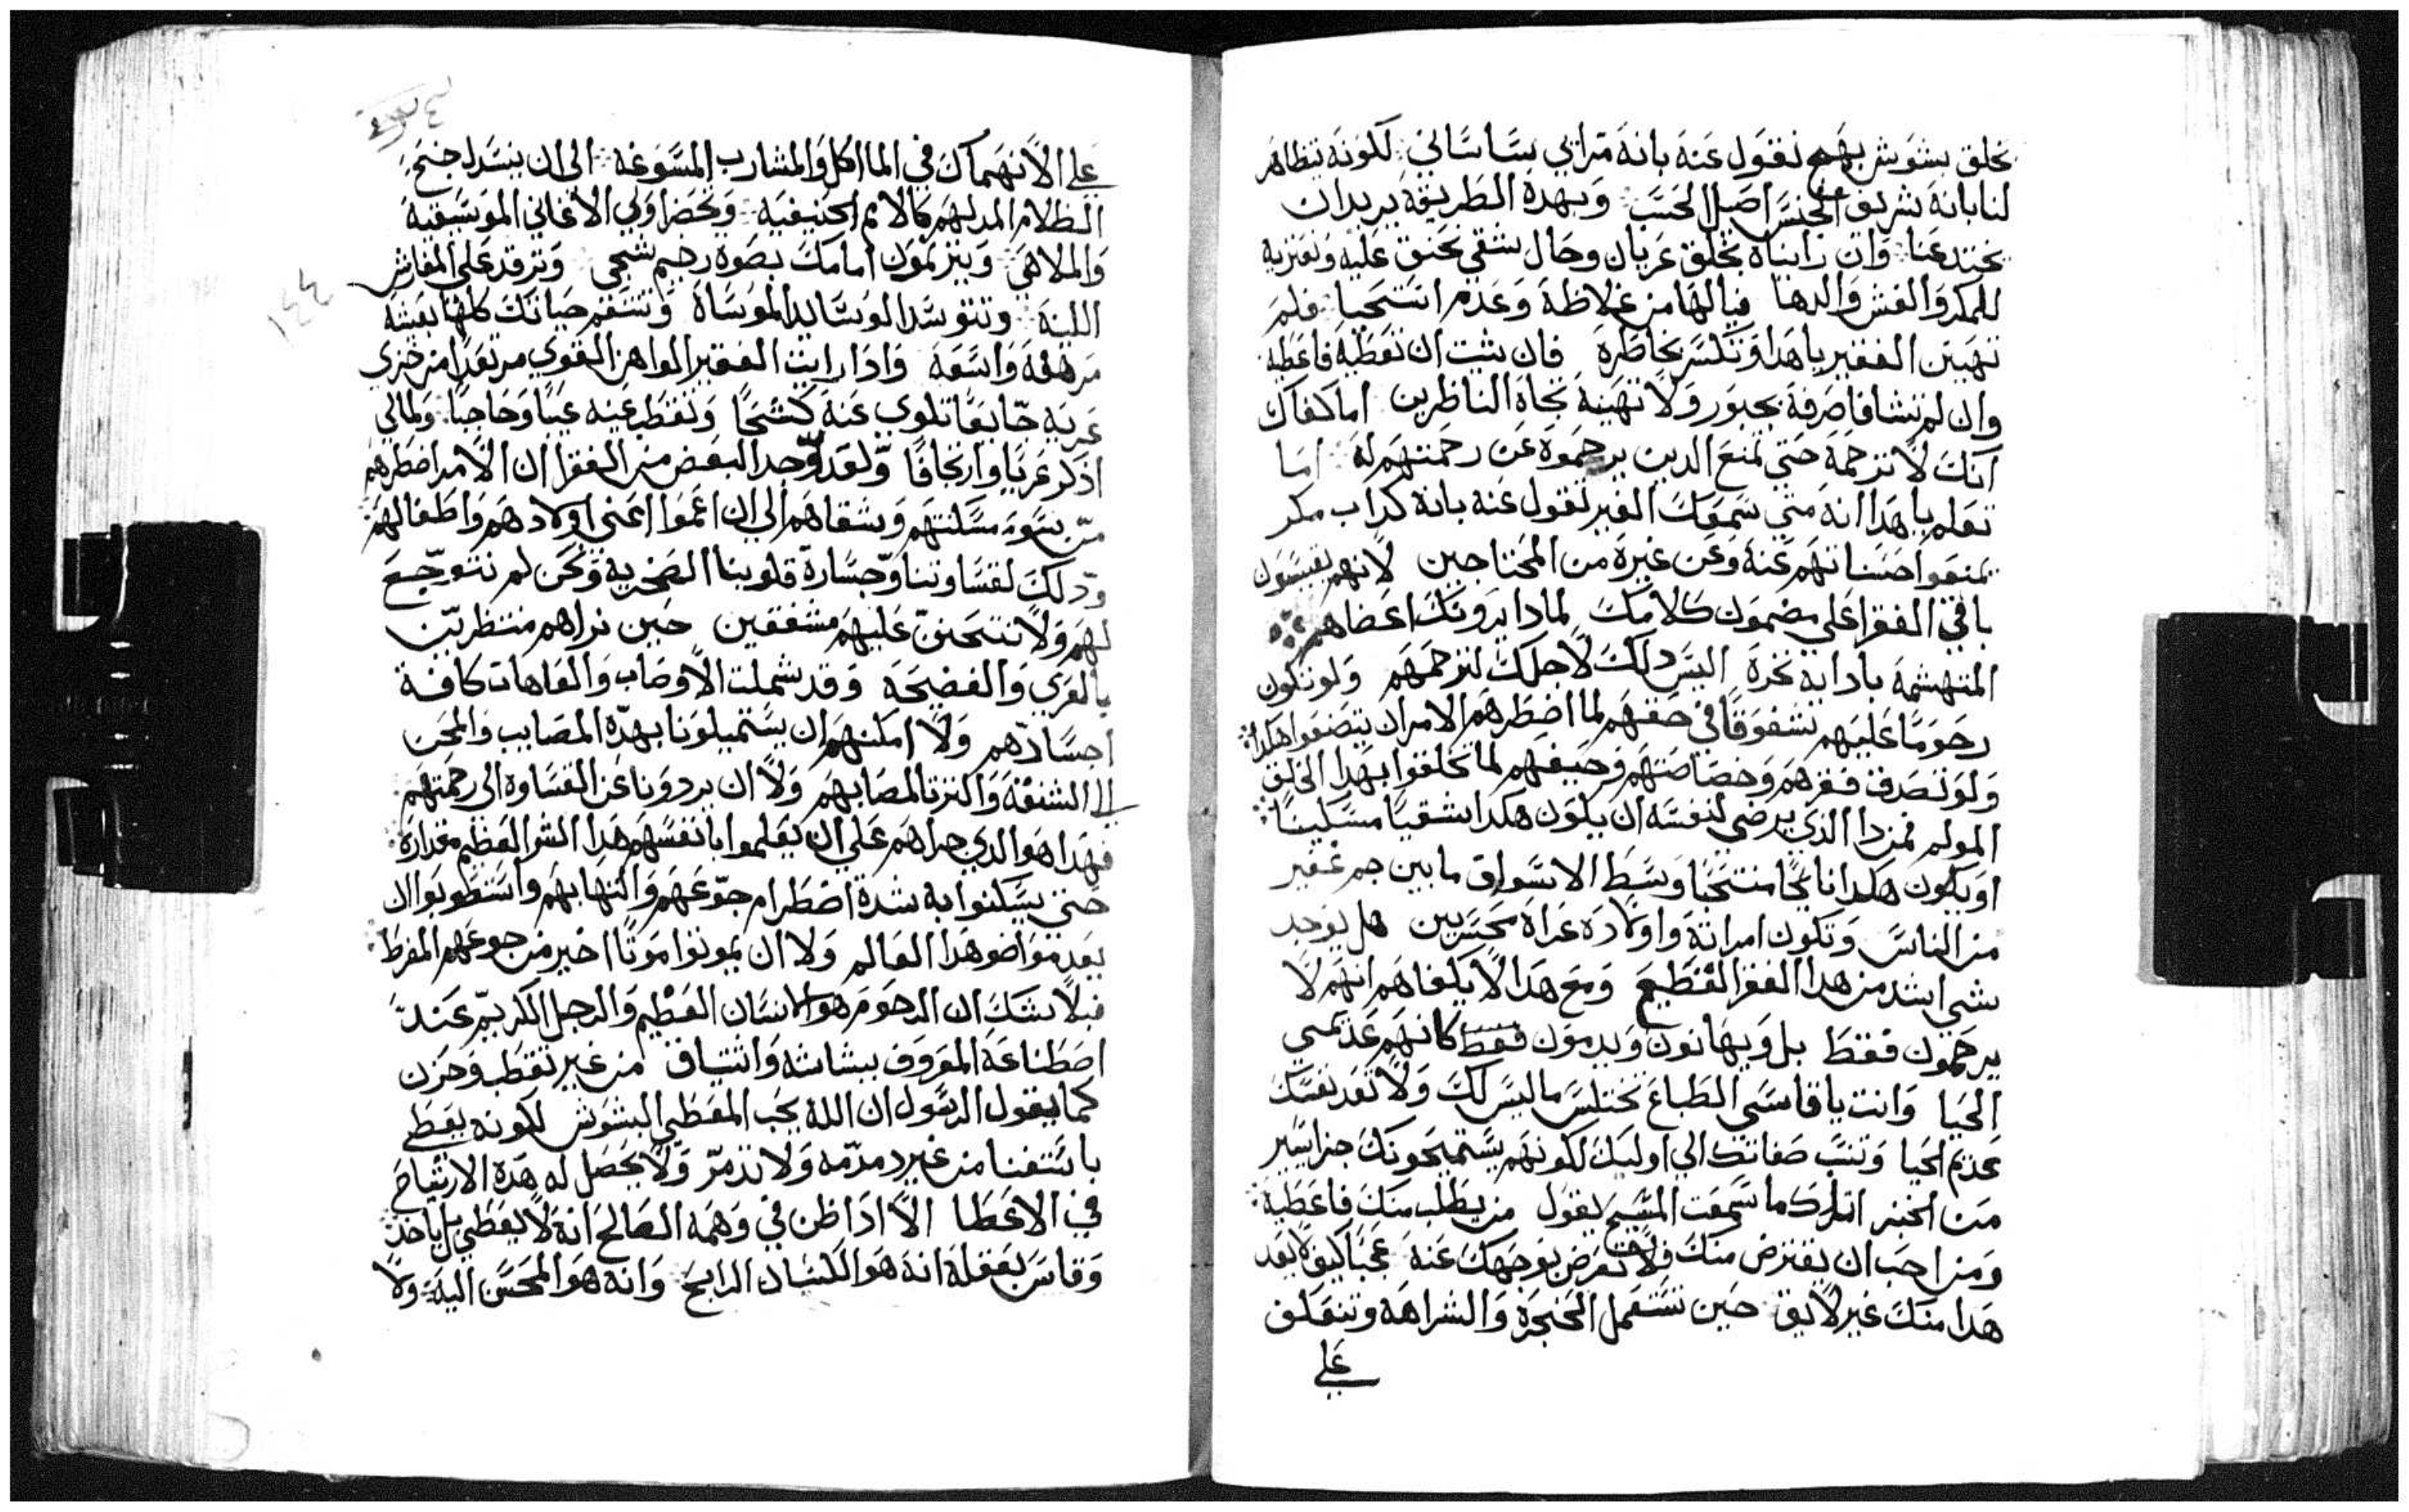 بخلق بشوش بهج نقول عنه بانه مرايي ساساني لكونه يتظاهر
لنا بانه شريف الجنس اصل الحسب وبهده الطريقة يريد ان
يختدعنا وان رايناه بخلق عريان وحال شقي نحنق عليه ونعتزيه
للمكر والغش والدها فيالها من غلاظة وعدم استحيا فلم
تهين الفقير ياهدا وتكسر بخاطره فان شيت ان تعطيه فاعطيه
وان لم تشا فاصرفه بحبور ولا تهينه تجاه الناظرين اما كفاك
انك لا ترحمه حتى تمنع الدين يرحموه عن رحمتهم له اما
تعلم ياهدا انه متي سمعك الغير تقول عنه بانه كداب مكر
يمنعوا حسناتهم عنه وعن غيره من المحتاجين لانهم يقيسون
باقي الفقرا علي مضمون كلامك لمادا يرونك اعضاهم
المتهشمه باداية نخرة اليس دلك لاجلك لترحمهم ولو تكون
رحوما عليهم شفوقا في حقهم لما اضطرهم الامر ان يتصنعوا هكدا
ولو تصدق فقرهم وخصاصتهم وحيفهم لما تخلقوا بهدا الخلق
المولم فمن دا الدي يرضي لنفسه ان يكون هكدا شقيا مسكينا
او يكون هكدا نايحا منتحبا وسط الاسواق ما بين جم غفير
من الناس وتكون امراته واولاده عراه محسريين هل يوجد
شي اشد من هدا الفقر الفظيع ومع هدا لا يكفاهم انهم لا
يرحمون فقط بل ويهانون ويدمون فقط كانهم عديمي
الحيا وانت يا قاسي الطباع تختلس ما ليس لك ولا تعد نفسك
عديم الحيا وتنسب صفاتك الي اوليك لكونهم يستميحونك جزا يسير
من الخبز اترك ما سمعت المسيح يقول من يطلب منك فاعطيه
ومن احب ان يقترض منك فلا تعرض بوجهك عنه عجبا كيف لا يعد
هدا منك غير لايق حين تستعمل الحنجرة والشراهه وتنعكف
علي
علي الانهماك في الماكل والمشارب المسوغه الي ان ينسدل جنح
الظلام المدلهم كالامم الحنيفيه ويحضر اولي الاغاني الموسيقية
والملاهي ويترنمون امامك بصوة رخيم شجي وترقد علي المفارش
اللينة وتتوسد الوسايد الموساة وتستقم حياتك كلها بعيشة
مرهفة واسعة وادا رايت الفقير الواهن القوي مرتعدا من خزي
عريه جايعا تلوي عنه كشحا وتقطب عينه عينا وحاجبا ولمالي
ادكر عريا وارتجافا ولقد وجد البعض من الفقرا ان الامر اضطرهم
من سوء مسكنتهم وشقاهم الي ان اعموا اعني اولادهم واطفالهم
ودلك لقساوتنا وجسارة قلوبنا الصخرية ونحن لم نتوجع
لهم ولا نتحنن عليهم مشفقين حين نراهم منتظريين
بالعري والفضيحة وقد شملت الاوصاب والعاهات كافة
اجسادهم ولا امكنهم ان يستميلونا بهده المصايب والمحن
الي الشفقة والترتا لمصابهم ولا ان يردونا عن القساوه الي رحمتهم
فهدا هو الدي جراهم علي ان يعلموا بانفسهم هدا الشر العظيم مقداره
حتي يسكنوا به شدة اضطرام جوعهم والتهابهم واستطوبوا ان
يعدموا ضو هدا العالم ولا ان يموتوا موتا اخير من جوعهم المفرط
فبلا شك ان الرحوم هو الانسان العظيم والرجل الكريم عند
اصطناعة المعروف ببشاشه واشتياق من غير تقطب وحزن
كما يقول الرسول ان الله يحب المعطي البشوش لكونه يعطي
باستغنا من غير دمدمه ولا تدمر ولا يحصل له هده الارتياح
في الاعطا الا ادا ظن في وهمه الصالح انه لا يعطي بل ياخد
وقاس بعقلة انه هو الكسبان الرابح وانه هو المحسن اليه ولا
١٤٤